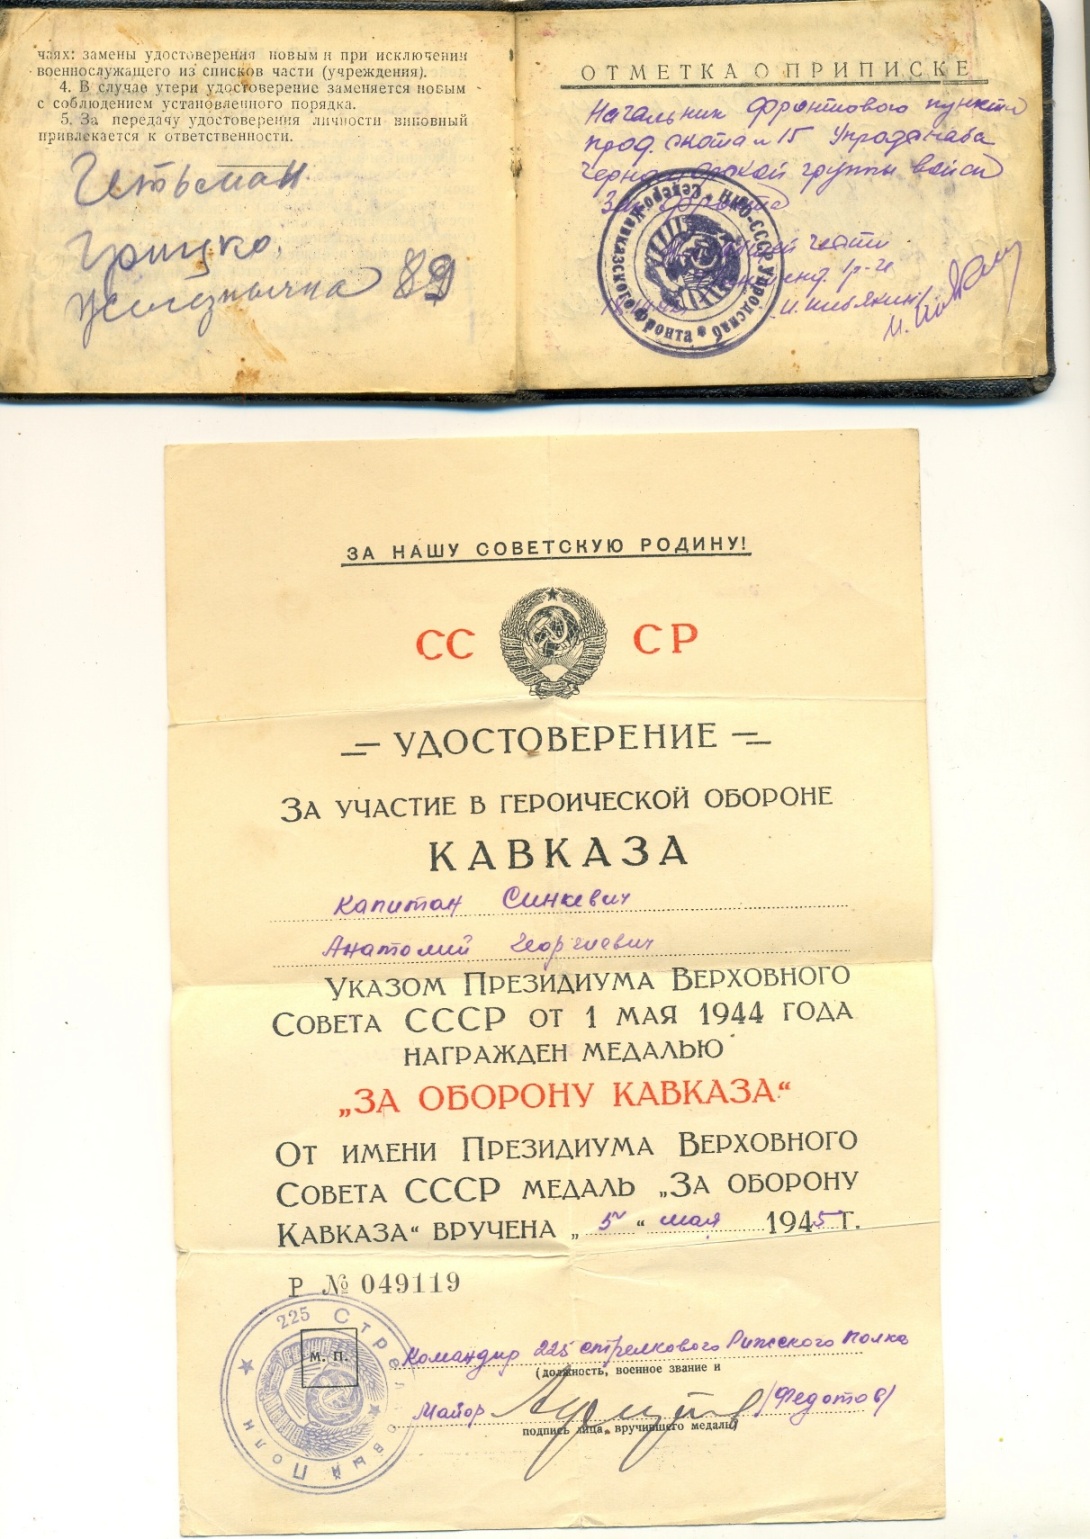 чаях: замены удостоверения новым и при исключении
военнослужащего из списков части (учреждения).
4. В случае утери удостоверение заменяется новым
с соблюдением установленного порядка.
5. За передачу удостоверения личности виновный
привлекается к ответственности.
Гетьман
Грицко.
89
ОТМЕТКА О ПРИПИСКЕ
Начальник фронтового пункта
прод. скота №15 Упродснаба
Черноморской группы войск
Зак фронта
части
НКО-СССР Упродснаб Северо-Кавказского фронта
ЗА НАШУ СОВЕТСКУЮ РОДИНУ!
СС СР
УДОСТОВЕРЕНИЕ
ЗА УЧАСТИЕ В ГЕРОИЧЕСКОЙ ОБОРОНЕ
КАВКАЗА
Капитан Синкевич
Анатолий Георгиевич
УКАЗОМ ПРЕЗИДИУМА ВЕРХОВНОГО
СОВЕТА СССР ОТ 1 МАЯ 1944 ГОДА
НАГРАЖДЕН МЕДАЛЬЮ
„ЗА ОБОРОНУ КАВКАЗА“
ОТ ИМЕНИ ПРЕЗИДИУМА ВЕРХОВНОГО
СОВЕТА СССР МЕДАЛЬ „ЗА ОБОРОНУ
КАВКАЗА“ ВРУЧЕНА „5“ мая 1945 Г.
Р № 049119
225 Стрелковый Полк
М. П.
Командир 225 стрелкового Рижского полка
(должность, военное звание и
Майор /Федотов/
подпись лица, вручившего медаль)